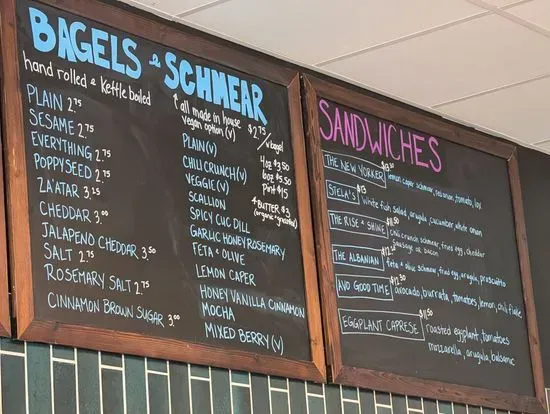 BAGELS & SCHMEAR
hand rolled & kettle boiled
PLAIN 2.75
SESAME 2.75
EVERYTHING 2.75
POPPYSEED 2.75
ZA'ATAR 3.15
CHEDDAR 3.00
JALAPEÑO CHEDDAR 3.50
SALT 2.75
ROSEMARY SALT 2.75
CINNAMON BROWN SUGAR 3.00
all made in house
vegan option (v)
$2.75/bagel
4oz $3.50
6oz $5.50
Pint $15
+BUTTER $3
(organic + grassfed)
PLAIN (v)
CHILI CRUNCH (v)
VEGGIE (v)
SCALLION
SPICY CUC DILL
GARLIC HONEY ROSEMARY
FETA & OLIVE
LEMON CAPER
HONEY VANILLA CINNAMON
MOCHA
MIXED BERRY (v)
SANDWICHES
THE NEW YORKER
lemon caper schmear, red onion, tomato, lox
SIELA'S $13
white fish salad, arugula, cucumber, white onion
THE RISE & SHINE $11.50
chili crunch schmear, fried egg, cheddar
sausage or bacon
THE ALBANIAN $12.50
feta & olive schmear, fried egg, arugula, prosciutto
AVO GOOD TIME $12.50
avocado, burrata, tomatoes, lemon, chili flake
EGGPLANT CAPRESE $11.50
roasted eggplant, tomatoes
mozzarella, arugula, balsamic